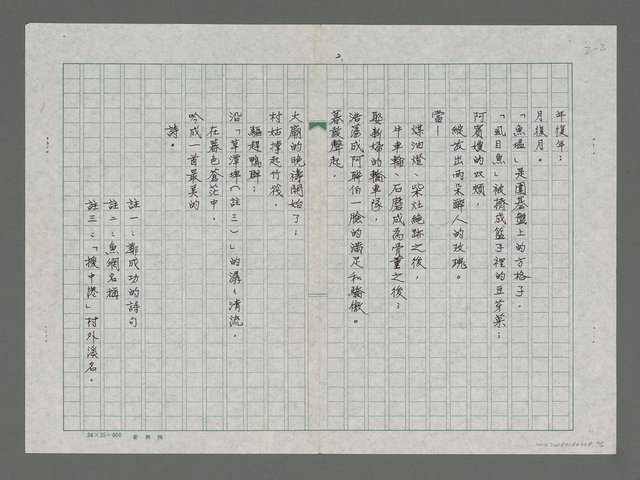 2.
2-2
年復年；
月復月。
「魚塭」是圍碁盤上的方格子，
「虱目魚」被擠成籃子裡的豆芽菜；
阿賓嫂的双頰，
綻放出兩朵醉人的玫瑰。
當—
煤油燈、柴灶絕跡之後，
牛車輪、石磨成為骨董之後；
娶新婦的輪車隊，
浩蕩成阿聯伯一臉的滿足和驕傲。
暮鼓聲起，
大廟的晚禱開始了；
村姑撐起竹筏，
驅趕鴨群；
沿「草潭埤（註三）」的潺々清流，
在暮色蒼茫中，
吟成一首最美的
詩。
註一：鄭成功的詩句
註二：魚網名稱
註三：「援中港」村外溪名。
24×25=600